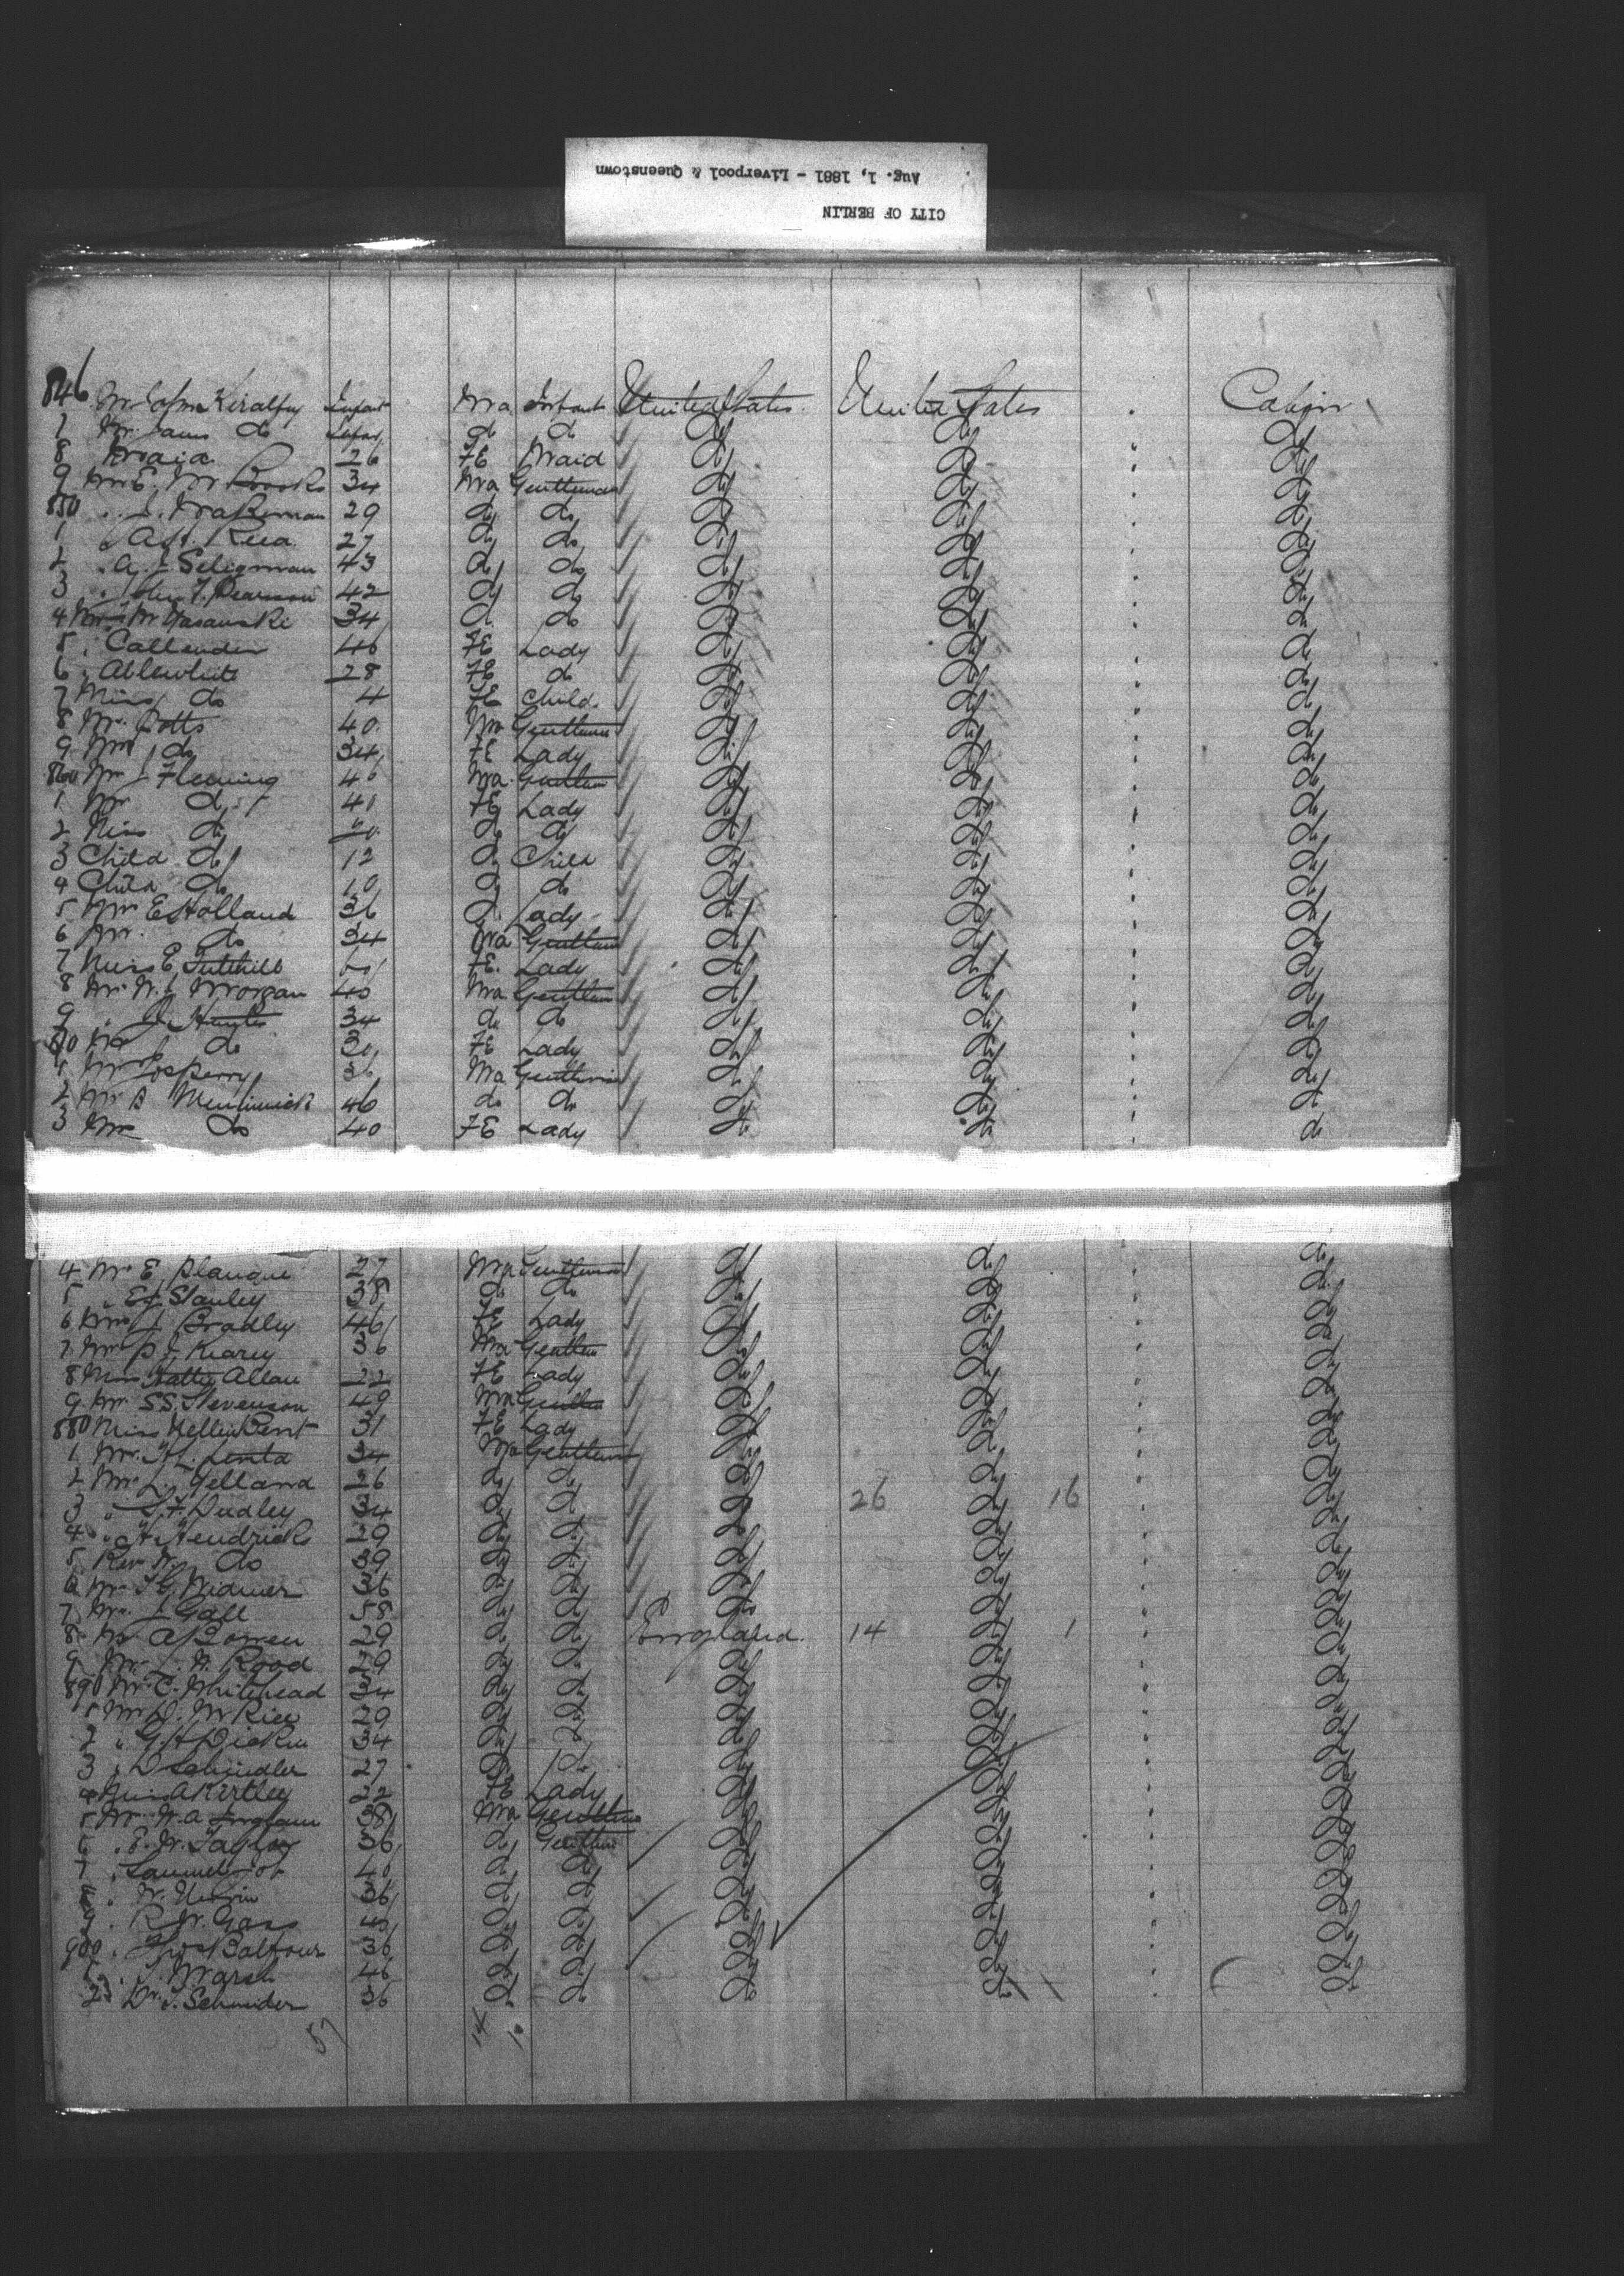 CITY OF BERLIN
Aug. 1, 1881 - Liverpool & Queenstown
846 Kiralfy Infant Ma Infant United States United States Cabin
7 Mr do Infant do do do do do
8 Maid 26 FE Maid do do do
9 Mr E. M. Brooks 34 Ma Gentleman do do do
850 " J. Wakeman 29 do do do do do
1 " 27 do do do do do
2 " A. J. Seligman 43 do do do do do
3 " John F. Pearson 42 do do do do do
4 34 do do do do do
5 " Callender 46 FE Lady do do do
6 " Ablewhite 28 FE do do do do
7 Miss do 4 FE Child do do do
8 Mr Potts 40 Ma Gentleman do do do
9 Mrs do 34 FE Lady do do do
860 Mr J Fleming 46 Ma Gentlem do do do
1 Mrs do 40 FE Lady do do do
2 Miss do do do do do do
3 Child do 12 do Child do do do
4 Child do 10 do do do do do
5 Mrs E Holland 36 do Lady do do do
6 Mr do 34 Ma Gentlem do do do
7 Miss E Tuthill FE Lady do do do
8 Mr W. J. Morgan 40 Ma Gentlem do do do
9 " J. Hunter 34 do do do do do
870 Mrs do 30 FE Lady do do do
1 Mr Jos Perry 36 Ma Gentlem do do do
2 Mr B 46 do do do do do
3 Mrs do 40 FE Lady do do do
4 Mr E. Planque 27 Ma Gentleman do do do
5 " E J Stanley 38 do do do do do
6 Mrs J Bradley 46 FE Lady do do do
7 Mr P. J. Kearey 36 Ma Gentlem do do do
8 Miss Hattie Allan 22 FE Lady do do do
9 Mr S S. Stevenson 49 Ma Gentlem do do do
880 Miss Nellie Bent 31 FE Lady do do do
1 Mr H. L. 34 Ma Gentlem do do do
2 Mr L. Gelland 26 do do do do do
3 " S. F. Dudley 34 do do do 26 do 16 do
4 " H. Hendricks 29 do do do do do
5 Rev W. do 39 do do do do do
6 Mr F G. Widmer 36 do do do do do
7 Mr J Gall 58 do do do do do
8 Mr A Bowen 29 do do England 14 do 1 do
9 Mr J. W. Rood 29 do do do do do
890 Mr C. Whitehead 34 do do do do do
1 Mr D. McRice 29 do do do do do
2 " G. H. Dickin 34 do do do do do
3 " D Schindler 27 do do do do do
4 Miss A Kirtley 22 FE Lady do do do
5 Mr W. A. Ingham 38 Ma Gentlem do do do
6 " E. W. Taylor 36 do Gentlem do do do
7 " Samuel 40 do do do do do
8 " W. 36 do do do do do
9 " R. W. Gass 40 do do do do do
900 " Thos Balfour 36 do do do do do
1 " J. Marsh 46 do do do do do
2 " Dr. J. Schneider 36 do do do do do
57 14 10